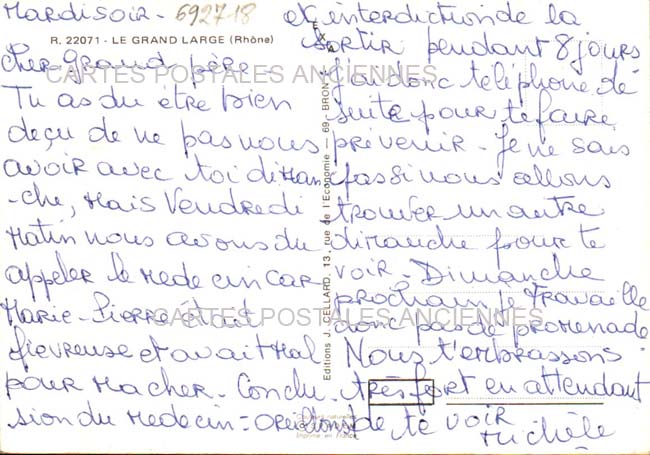 Mardi soir - 692718
R. 22071 - LE GRAND LARGE (Rhône)
Cher Grand-père
Tu as du être bien
deçu de ne pas nous
avoir avec toi diman
-che, Mais Vendredi
Matin nous avons du
appeler le Medecin car
Marie-Pierre était
fievreuse et avait Mal
pour Macher. Conclu-
sion du Medecin = oreillons
et interdiction de la
sortir pendant 8 jours
J'ai donc téléphoné de
suite pour te faire
prévenir - Je ne sais
pas si nous allons
trouver un autre
dimanche pour te
voir - Dimanche
prochain je travaille
donc pas de promenade
Nous t'embrassons
très fort en attendant
de te voir
Michèle
Editions J. CELLARD, 13, rue de l'Economie - 69 - BRON
EX A
CARTES POSTALES ANCIENNES
CARTES POSTALES ANCIENNES
Imprimé en France